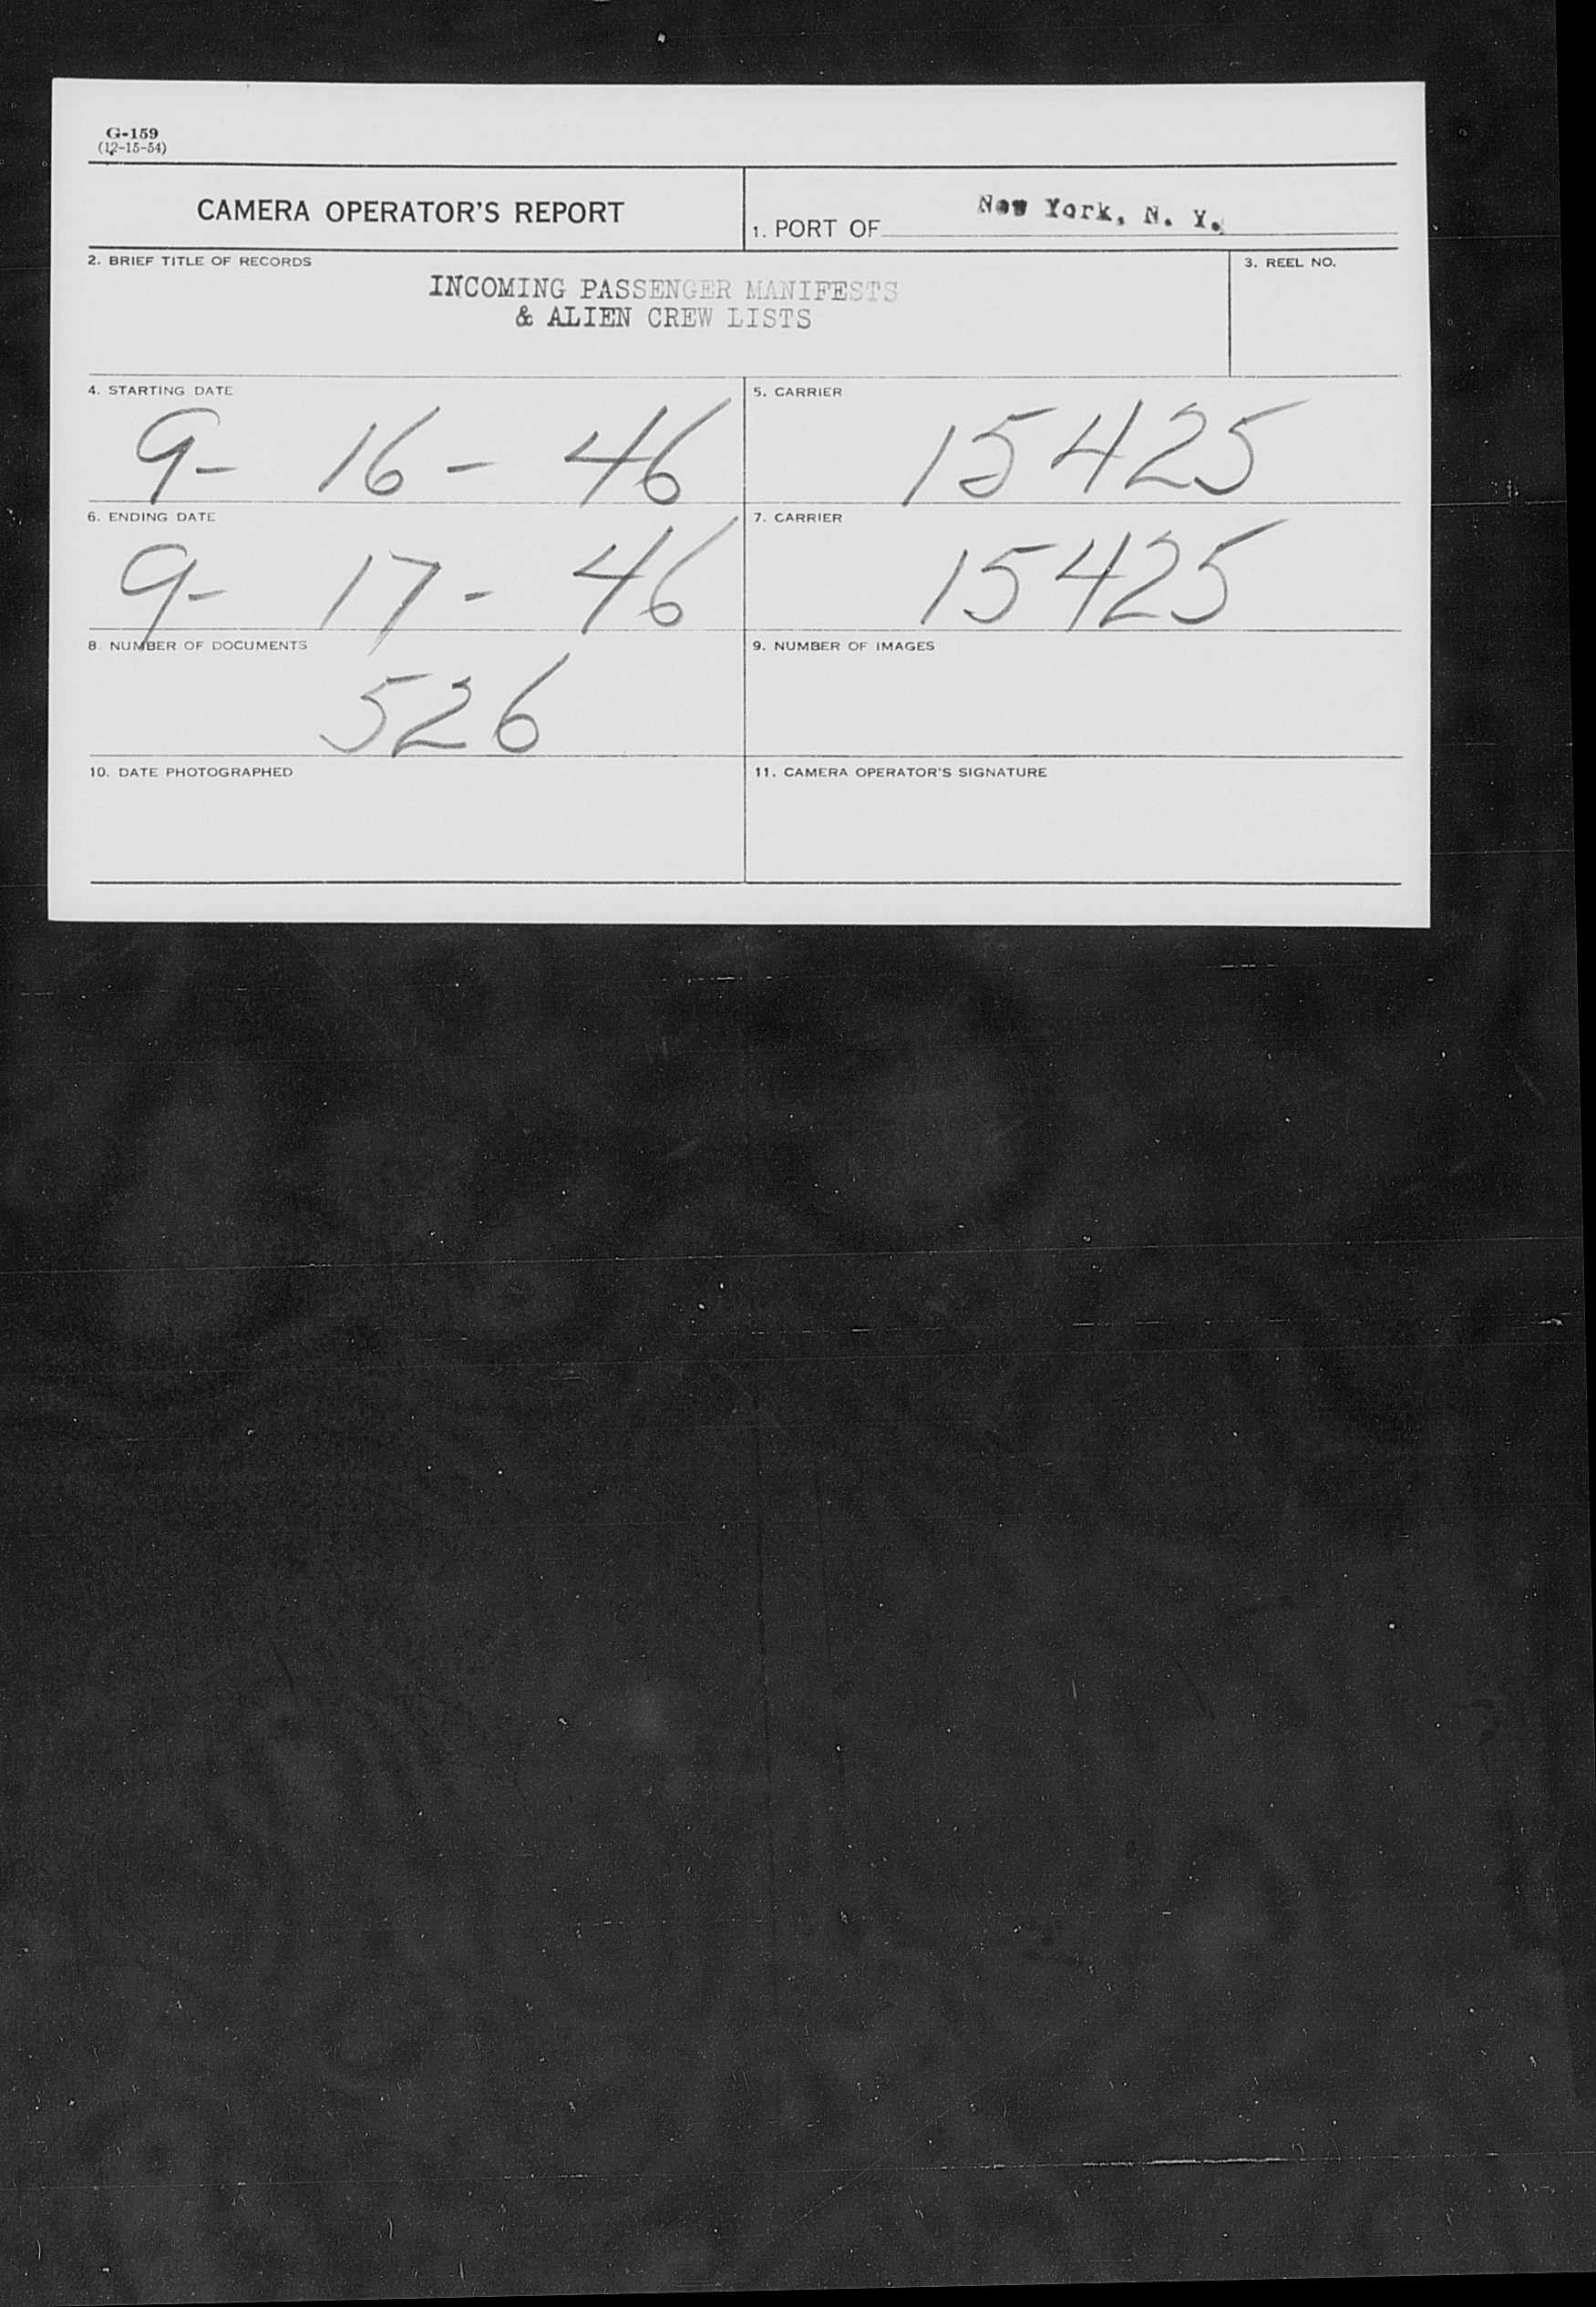 G-159
(12-15-54)
CAMERA OPERATOR'S REPORT
1. PORT OF New York, N. Y.
2. BRIEF TITLE OF RECORDS
INCOMING PASSENGER MANIFESTS
& ALIEN CREW LISTS
3. REEL NO.
4. STARTING DATE
9- 16- 46
5. CARRIER
15425
6. ENDING DATE
9- 17- 46
7. CARRIER
15425
8. NUMBER OF DOCUMENTS
526
9. NUMBER OF IMAGES
10. DATE PHOTOGRAPHED
11. CAMERA OPERATOR'S SIGNATURE